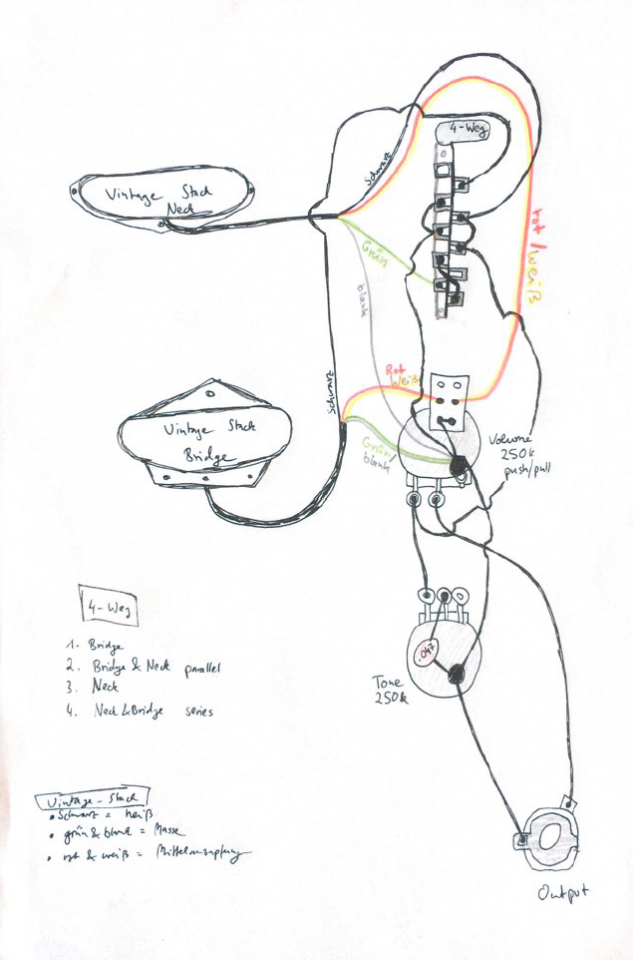 4-Weg
Vintage Stack
Neck
Schwarz
Grün
blank
rot/weiß
Schwarz
Rot
Weiß
Vintage Stack
Bridge
Grün/
blank
Volume
250k
push/pull
4-Weg
1. Bridge
2. Bridge & Neck parallel
3. Neck
4. Neck & Bridge series
.047
Tone
250k
Vintage-Stack
• Schwarz = heiß
• grün & blank = Masse
• rot & weiß = Mittelanzapfung
Output